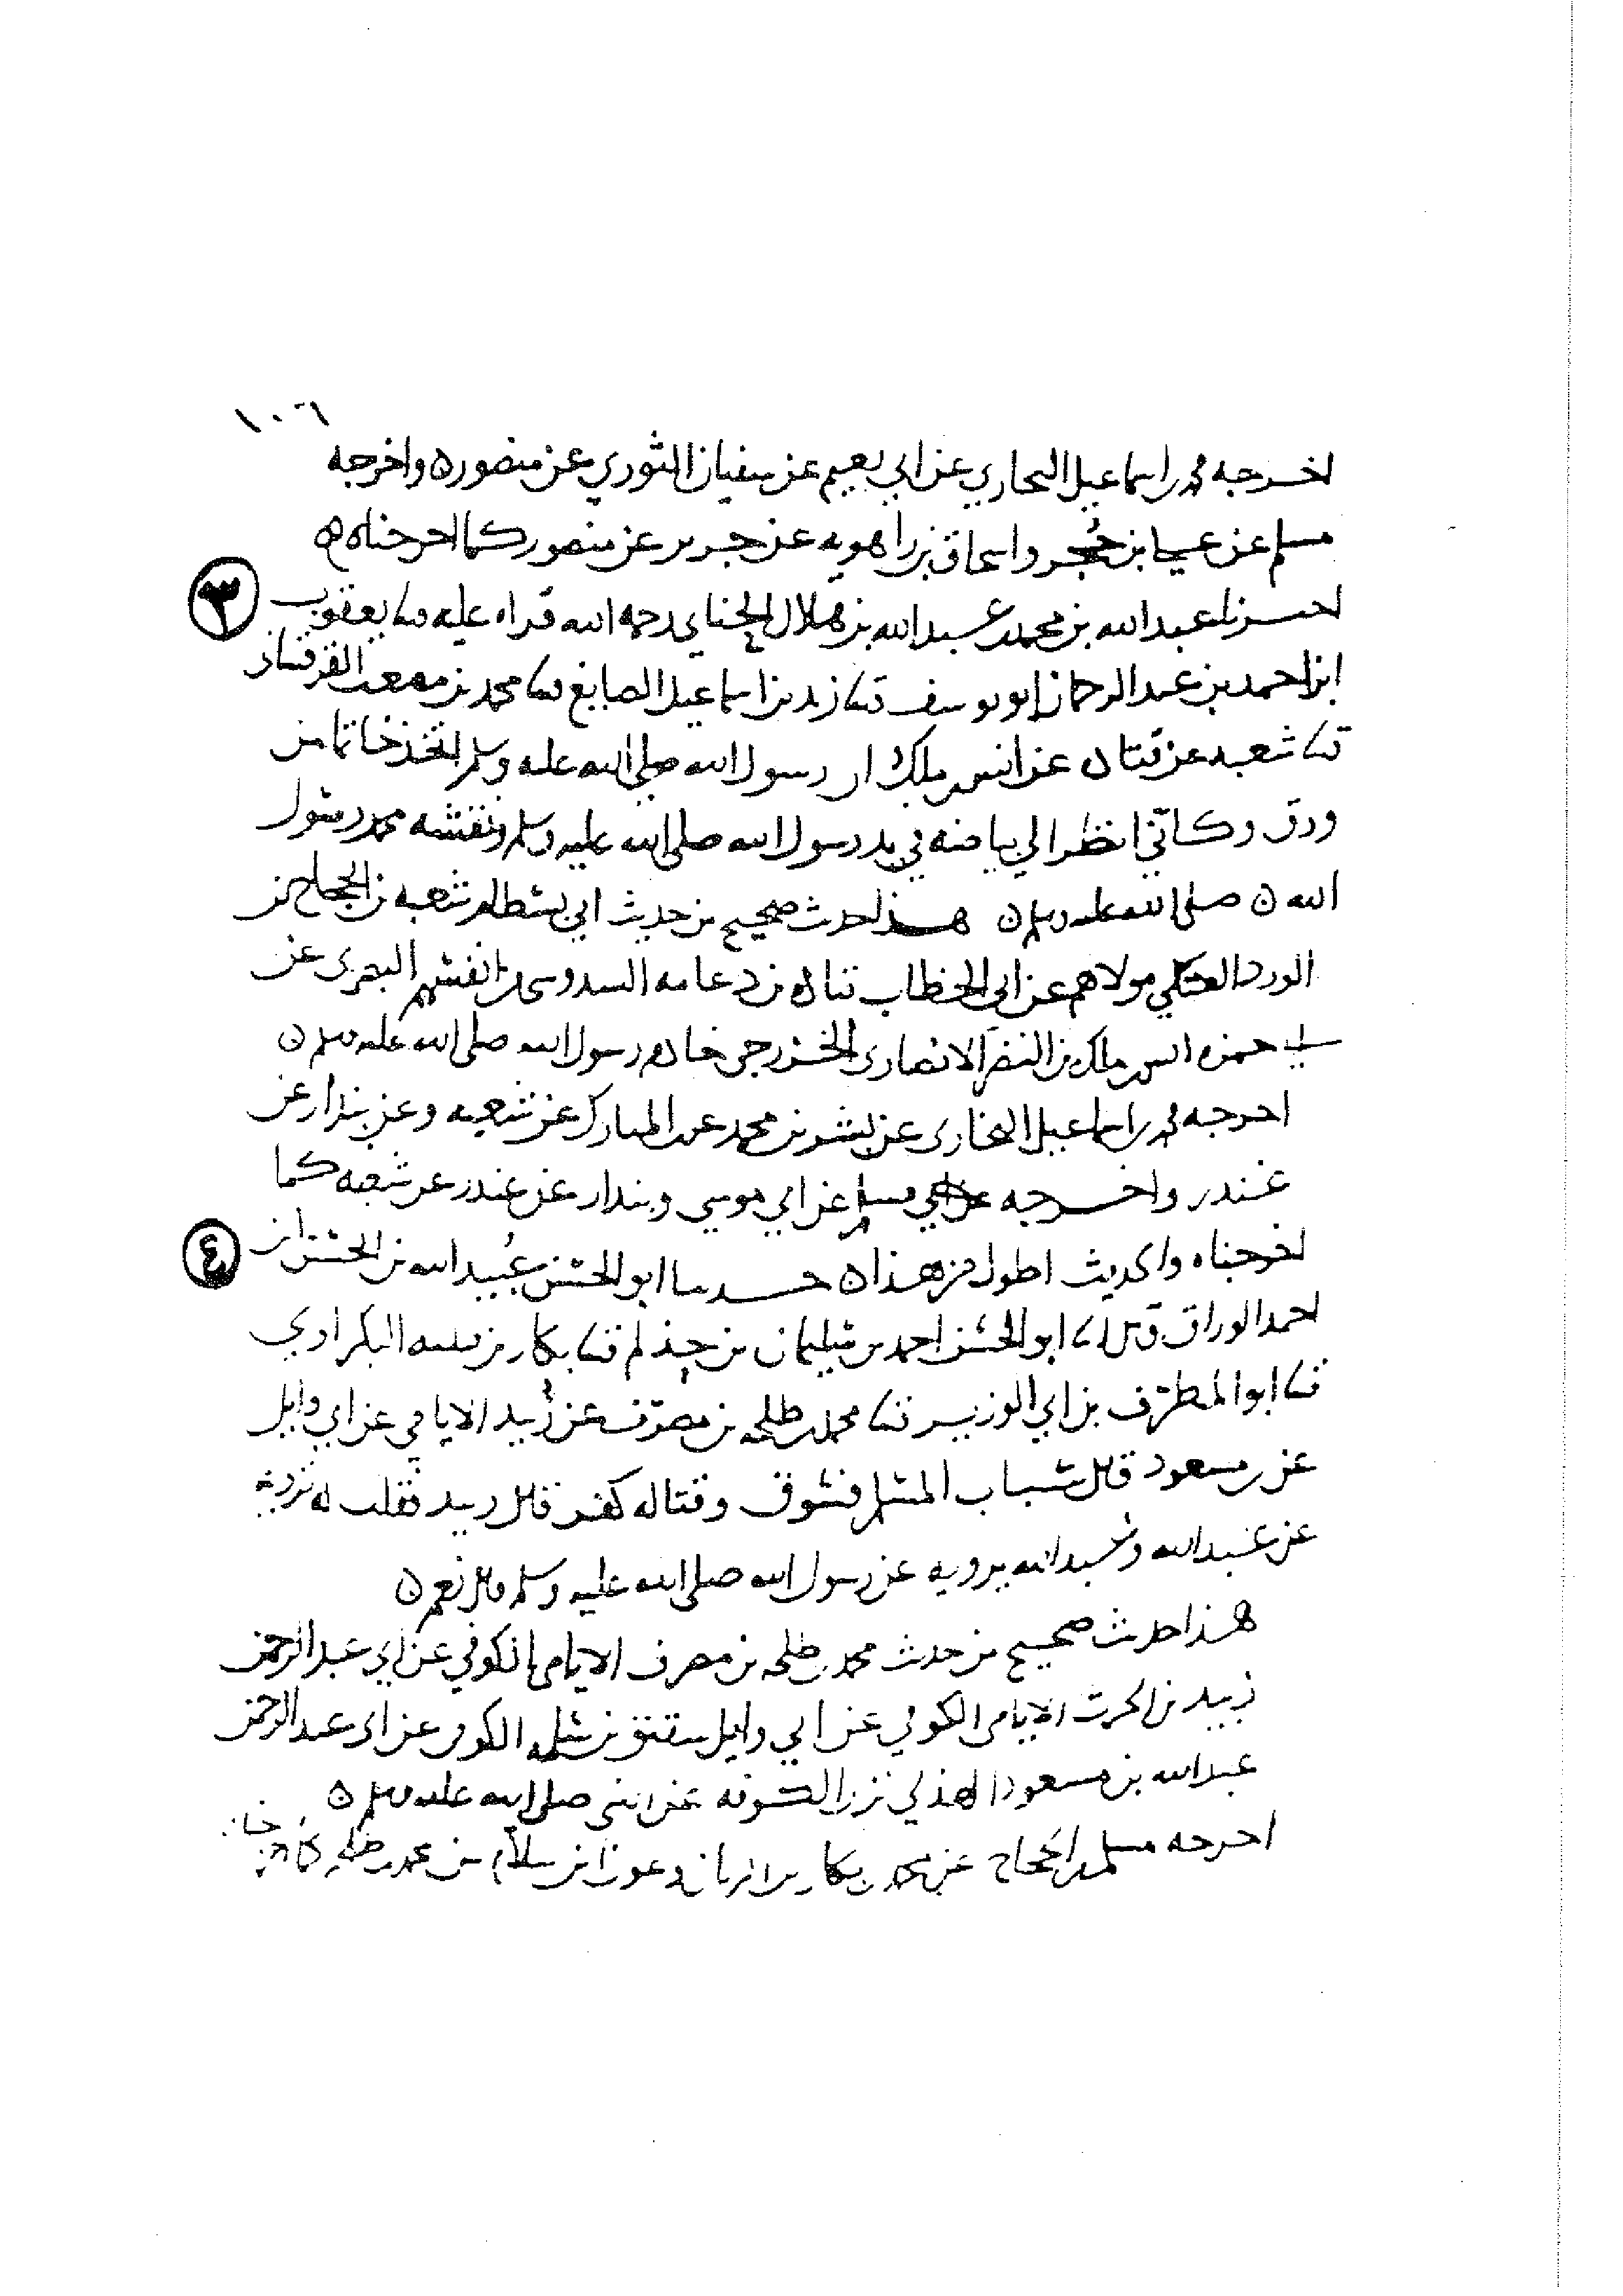 ١٠٦
اخرجه محمد بن اسماعيل البخاري عن ابي نعيم عن سفيان الثوري عن منصور ه واخرجه
مسلم عن علي بن حُجر واسحاق بن راهويه عن جرير عن منصور كما اخرجناه ه
٣
اخبرنا عبد الله بن محمد بن عبد الله بن هلال الحنائي رحمه الله قراه عليه ثنا يعقوب
ابن احمد بن عبد الرحمن ابو يوسف ثنا زيد بن اسماعيل الصايغ ثنا محمد بن مصعب القرقساني
ثنا شعبه عن قتاده عن انس بن ملك ان رسول الله صلى الله عليه وسلم اتخذ خاتما من
ورق وكاني انظر الي بياضه في يد رسول الله صلى الله عليه وسلم ونقشه محمد رسول
الله ه صلى الله عليه وسلم ه هذا حديث صحيح من حديث ابي بسطام شعبه بن الحجاج بن
الورد العتكي مولاهم عن ابي الخطاب قتاده بن دعامه السدوسي من انفسهم البصري عن
ابي حمزه انس بن ملك بن النضر الانصاري الخزرجي خادم رسول الله صلى الله عليه وسلم ه
اخرجه محمد بن اسماعيل البخاري عن بشر بن محمد عن المبارك عن شعبه وعن بندار عن
غندر واخرجه مسلم عن ابي موسي وبندار عن غندر عن شعبه كما
اخرجناه والحديث اطول من هذا ه حدثنا ابو الحسن عُبيد الله بن الحسن بن
٤
احمد الوراق قال ثنا ابو الحسن احمد بن سليمان بن حذلم ثنا بكار بن قتيبه البكراوي
ثنا ابو المطرّف بن ابي الوزير ثنا محمد بن طلحه بن مصرّف عن زُبيد الايامي عن ابي وايل
عن بن مسعود قال سباب المسلم فسوق وقتاله كفر قال زبيد فقلت له
عن عبد الله وعبد الله يرويه عن رسول الله صلى الله عليه وسلم قال نعم ه
هذا حديث صحيح من حديث محمد بن طلحه بن مصرف الايامي الكوفي عن ابي عبد الرحمن
زبيد بن الحرث الايامي الكوفي عن ابي وايل شقيق بن سلمه الكوفي عن ابي عبد الرحمن
عبد الله بن مسعود الهذلي نزل الكوفه عن النبي صلى الله عليه وسلم ه
اخرجه مسلم بن الحجاج عن محمد بن بكار بن الريان وعون بن سلام عن محمد بن طلحه كما